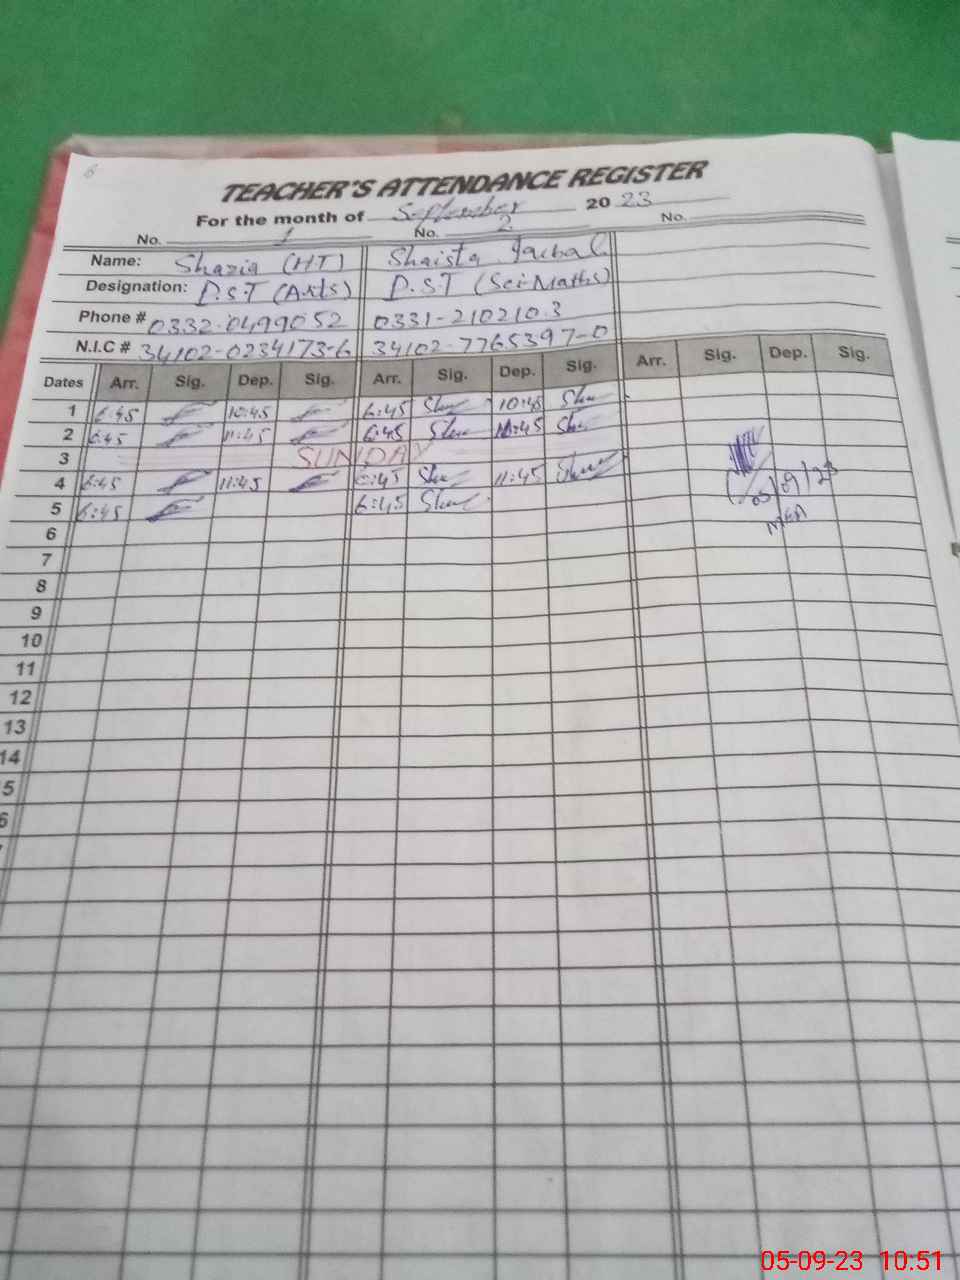 TEACHER'S ATTENDANCE REGISTER
For the month of September 2023
No. 1 No. 2 No.
Name: Shazia (HT) Shaista Iqbal
Designation: P.S.T (Arts) P.S.T (Sci-Maths)
Phone # 0332-0499052 0331-2102103
N.I.C # 34102-0234173-6 34102-7765397-0
Dates Arr. Sig. Dep. Sig. Arr. Sig. Dep. Sig. Arr. Sig. Dep. Sig.
1 6:45 10:45 6:45 10:45
2 6:45 11:45 6:45 11:45
3 SUNDAY
4 6:45 11:45 6:45 11:45
5 6:45 6:45
05/09/23
MEA
6
7
8
9
10
11
12
13
14
5
6
05-09-23 10:51